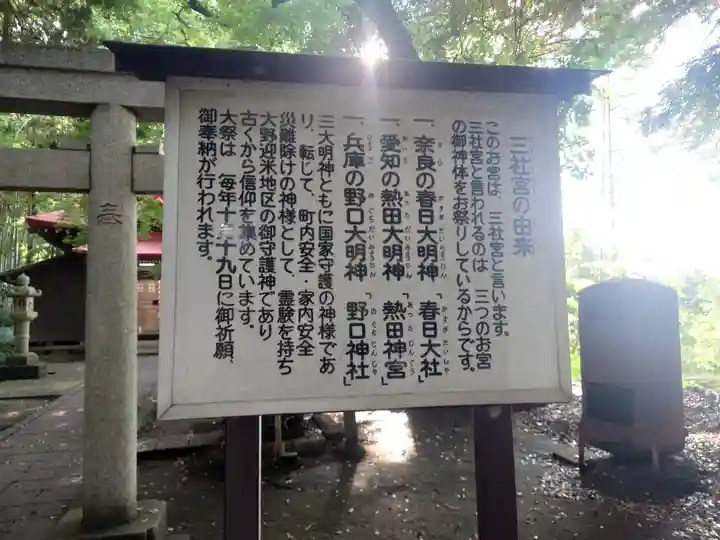 三社宮の由来
このお宮は、三社宮と言います。
三社宮と言われるのは　三つのお宮
の御神体をお祭りしているからです。
一、奈良の春日大明神「春日大社」
一、愛知の熱田大明神「熱田神宮」
一、兵庫の野口大明神「野口神社」
三大明神ともに国家守護の神様であ
り、転じて、町内安全・家内安全
災難除けの神様として、霊験を持ち
大野迎米地区の御守護神であり
古くから信仰を集めています。
大祭は　毎年十月十九日に御祈願、
御奉納が行われます。